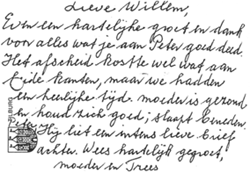 Lieve Willem,
Even een hartelijke groet en dank
voor alles wat je aan Peter goed deed.
Het afscheid kostte wel wat aan
beide kanten, maar we hadden
een heerlijke tijd. moeder is gezond
en houd zich goed; slaapt beneden.
Hij liet een intens lieve brief
achter. Wees hartelijk gegroet,
moeder en Trees